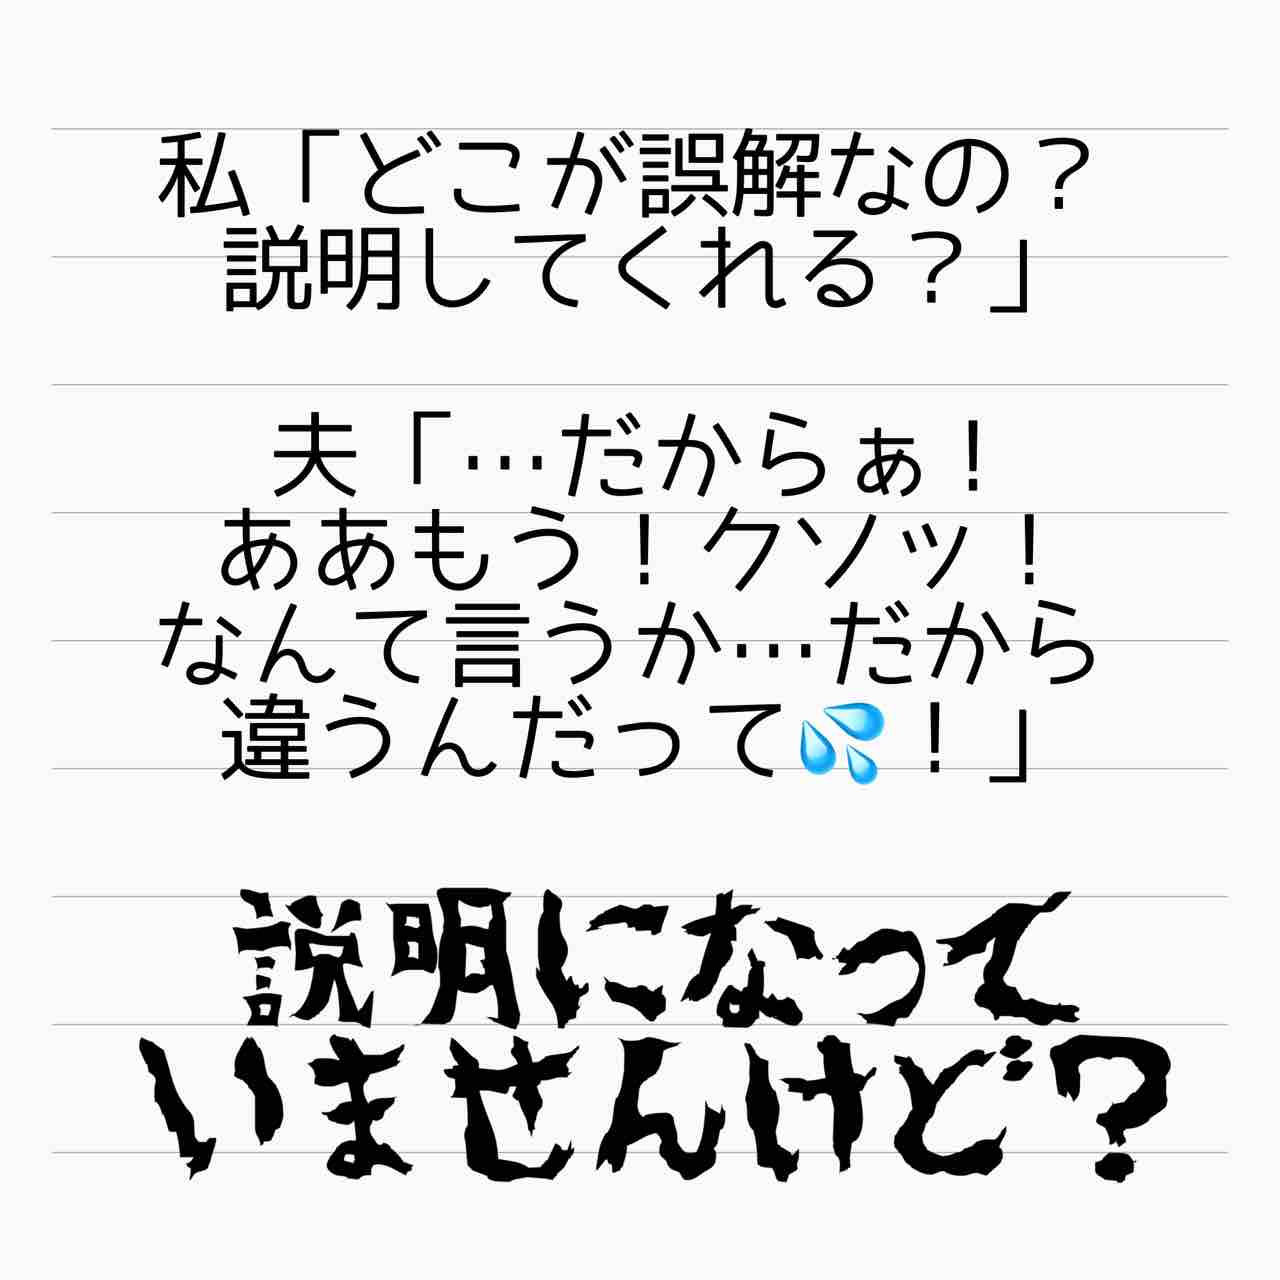 私「どこが誤解なの？
説明してくれる？」
夫「…だからぁ！
ああもう！クソッ！
なんて言うか…だから
違うんだって💦！」
説明になって
いませんけど？